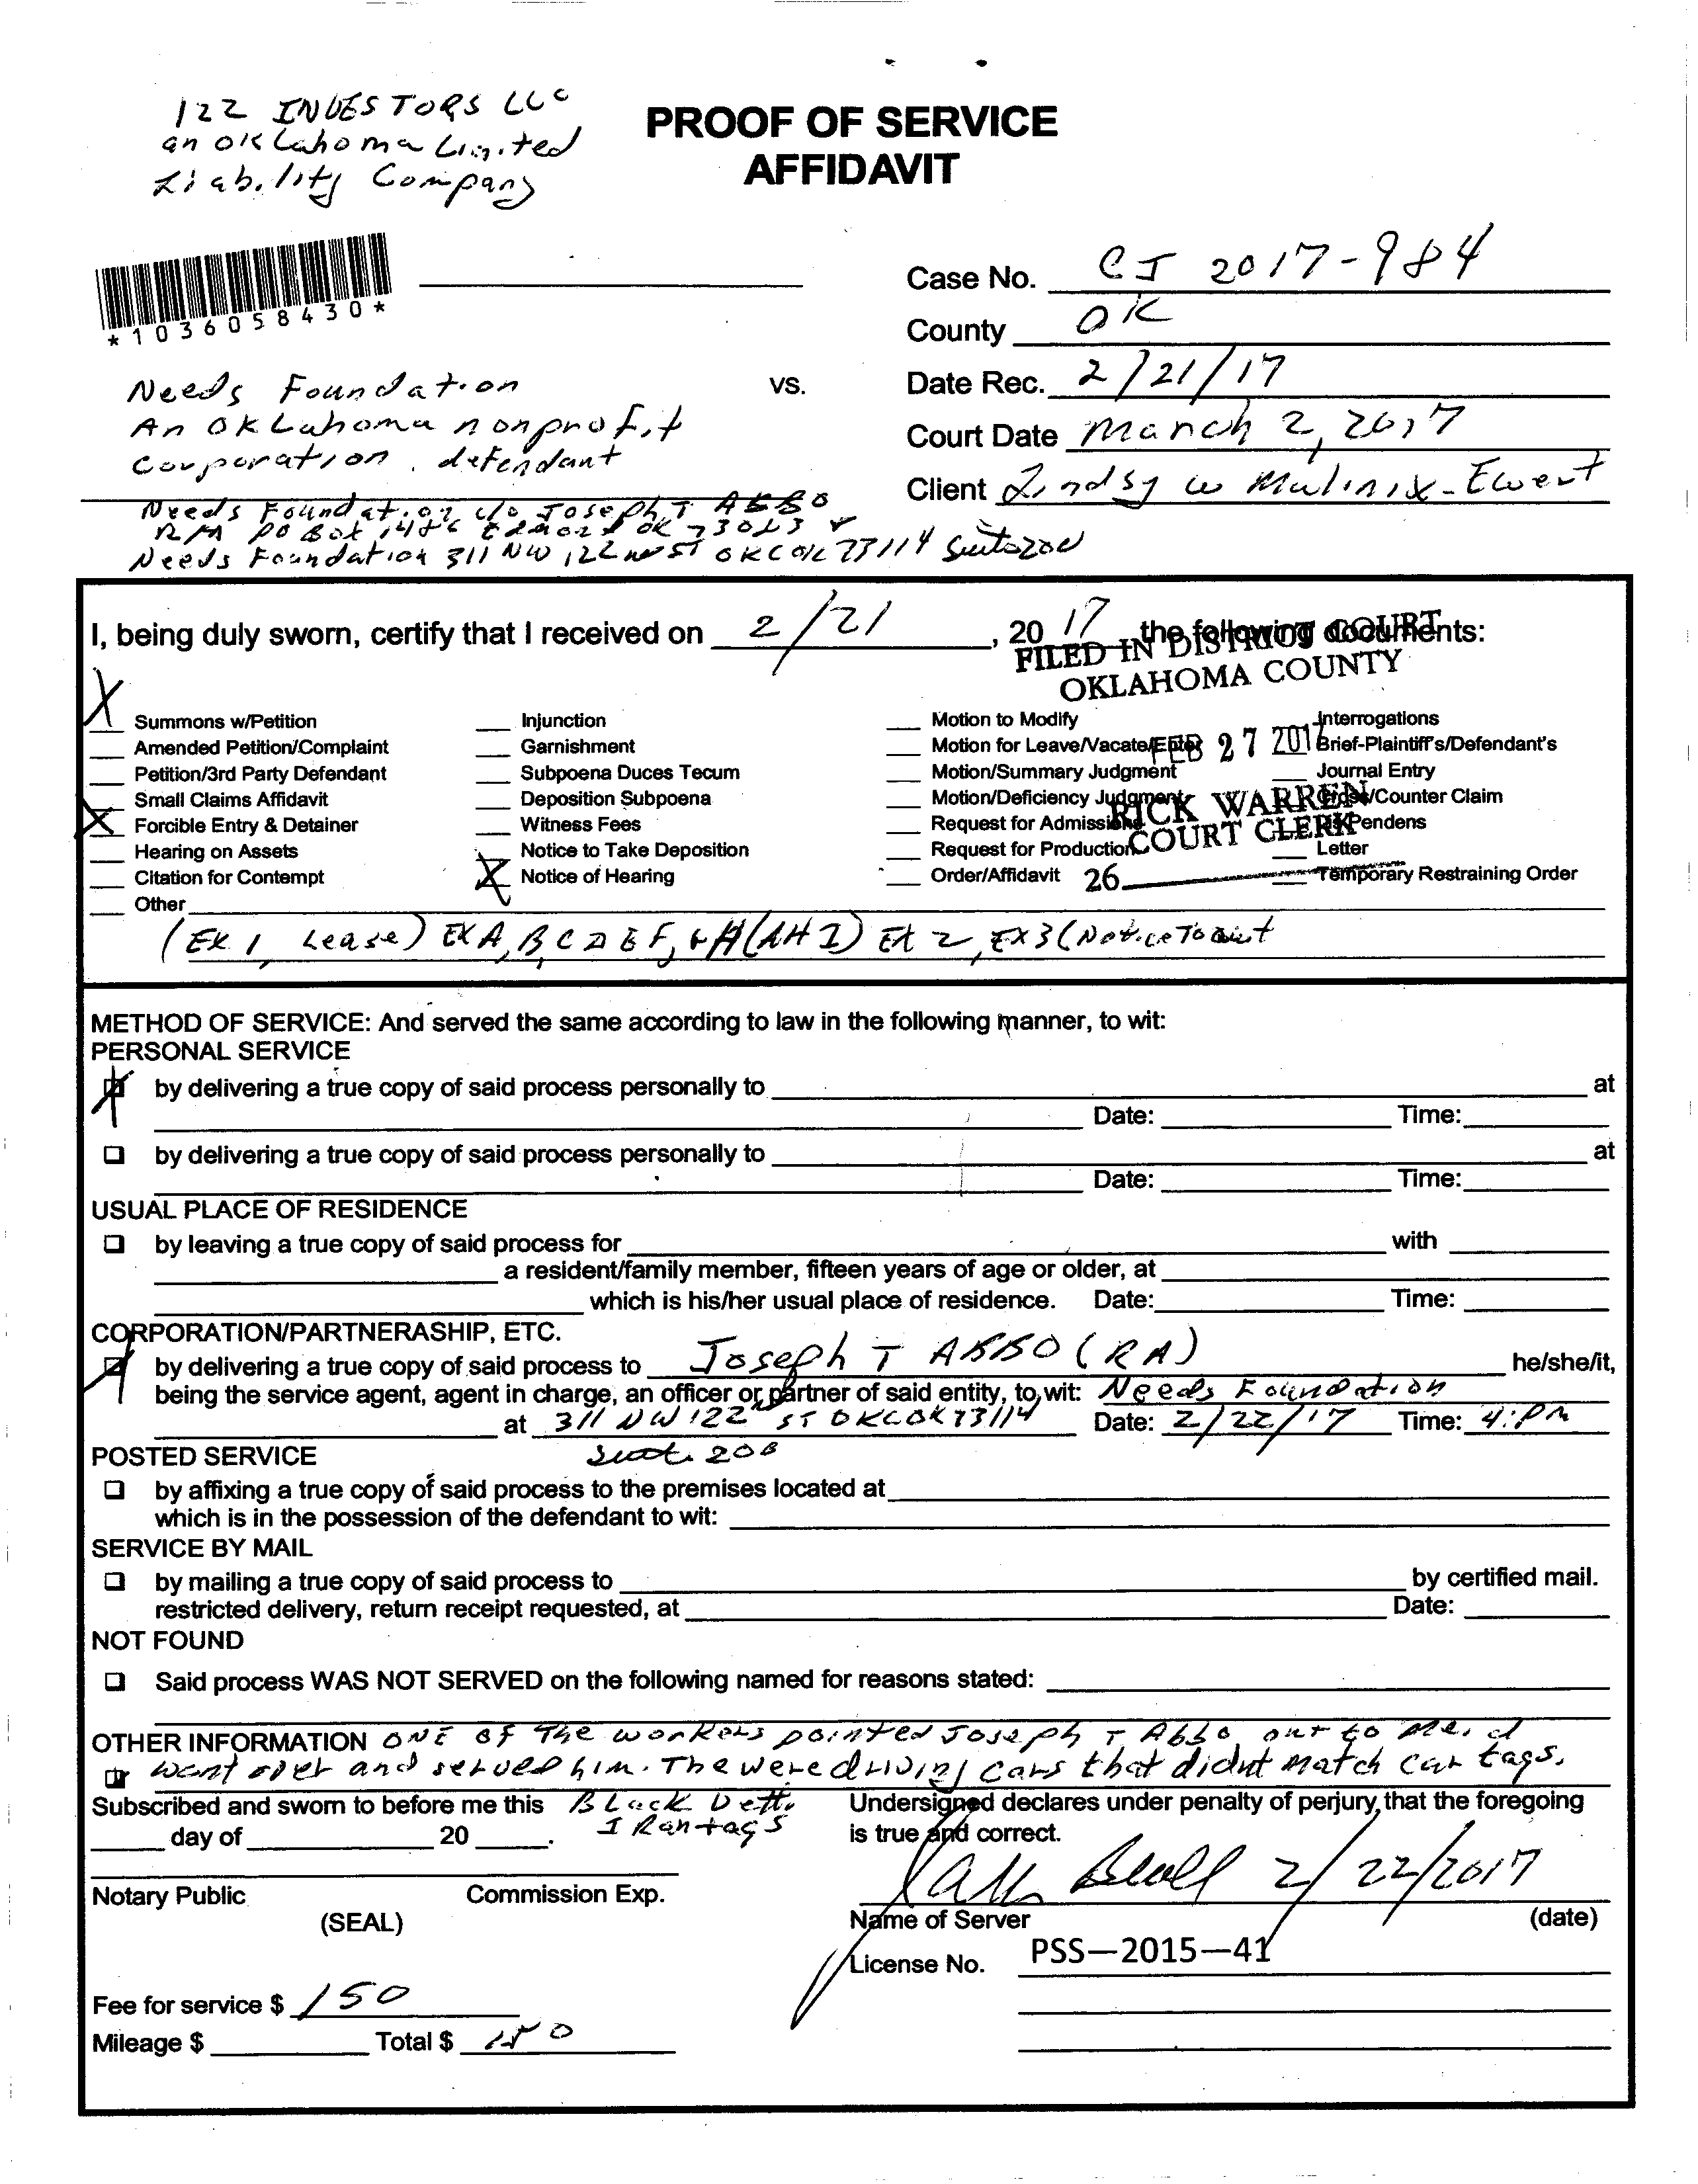 122 INVESTORS LLC
an OKLahoma Limited
Liability Company
PROOF OF SERVICE
AFFIDAVIT
*1036058430*
Case No. CJ 2017-984
County OK
Needs Foundation
vs.
Date Rec. 2/21/17
An OKLahoma nonprofit
Court Date March 2, 2017
corporation, defendant
Client Lindsy w Mulinix-Ewert
Needs Foundation c/o Joseph T ABBO
R/A PO Box Edmond OK
Needs Foundation 311 NW 122 ST OKC OK 73114
I, being duly sworn, certify that I received on 2/21, 2017 the following documents:
FILED IN DISTRICT COURT
OKLAHOMA COUNTY
FEB 27 2017
RICK WARREN
COURT CLERK
26
X Summons w/Petition
Amended Petition/Complaint
Petition/3rd Party Defendant
Small Claims Affidavit
X Forcible Entry & Detainer
Hearing on Assets
Citation for Contempt
Other
Injunction
Garnishment
Subpoena Duces Tecum
Deposition Subpoena
Witness Fees
Notice to Take Deposition
X Notice of Hearing
Motion to Modify
Motion for Leave/Vacate/Enter
Motion/Summary Judgment
Motion/Deficiency Judgment
Request for Admissions
Request for Production
Order/Affidavit
Interrogations
Brief-Plaintiff's/Defendant's
Journal Entry
Cross/Counter Claim
Pendens
Letter
Temporary Restraining Order
(EX 1, Lease) EX A, B, C D E F, EX 2, EX 3 (Notice To
METHOD OF SERVICE: And served the same according to law in the following manner, to wit:
PERSONAL SERVICE
by delivering a true copy of said process personally to at
Date: Time:
by delivering a true copy of said process personally to at
Date: Time:
USUAL PLACE OF RESIDENCE
by leaving a true copy of said process for with
a resident/family member, fifteen years of age or older, at
which is his/her usual place of residence. Date: Time:
CORPORATION/PARTNERASHIP, ETC.
by delivering a true copy of said process to Joseph T ABBO (RA) he/she/it,
being the service agent, agent in charge, an officer or partner of said entity, to wit: Needs Foundation
at 311 NW 122nd ST OKC OK 73114 Date: 2/22/17 Time: 4:PM
POSTED SERVICE
by affixing a true copy of said process to the premises located at
which is in the possession of the defendant to wit:
SERVICE BY MAIL
by mailing a true copy of said process to by certified mail.
restricted delivery, return receipt requested, at Date:
NOT FOUND
Said process WAS NOT SERVED on the following named for reasons stated:
OTHER INFORMATION ONE of The workers pointed Joseph T Abbo out to me. I
went over and served him. The were driving cars that didnt match car tags.
Subscribed and sworn to before me this
Black
I Ran tags
day of 20 .
Undersigned declares under penalty of perjury, that the foregoing
is true and correct.
2/22/2017
Notary Public Commission Exp.
(SEAL)
Name of Server (date)
License No. PSS-2015-41
Fee for service $ 150
Mileage $ Total $ 150